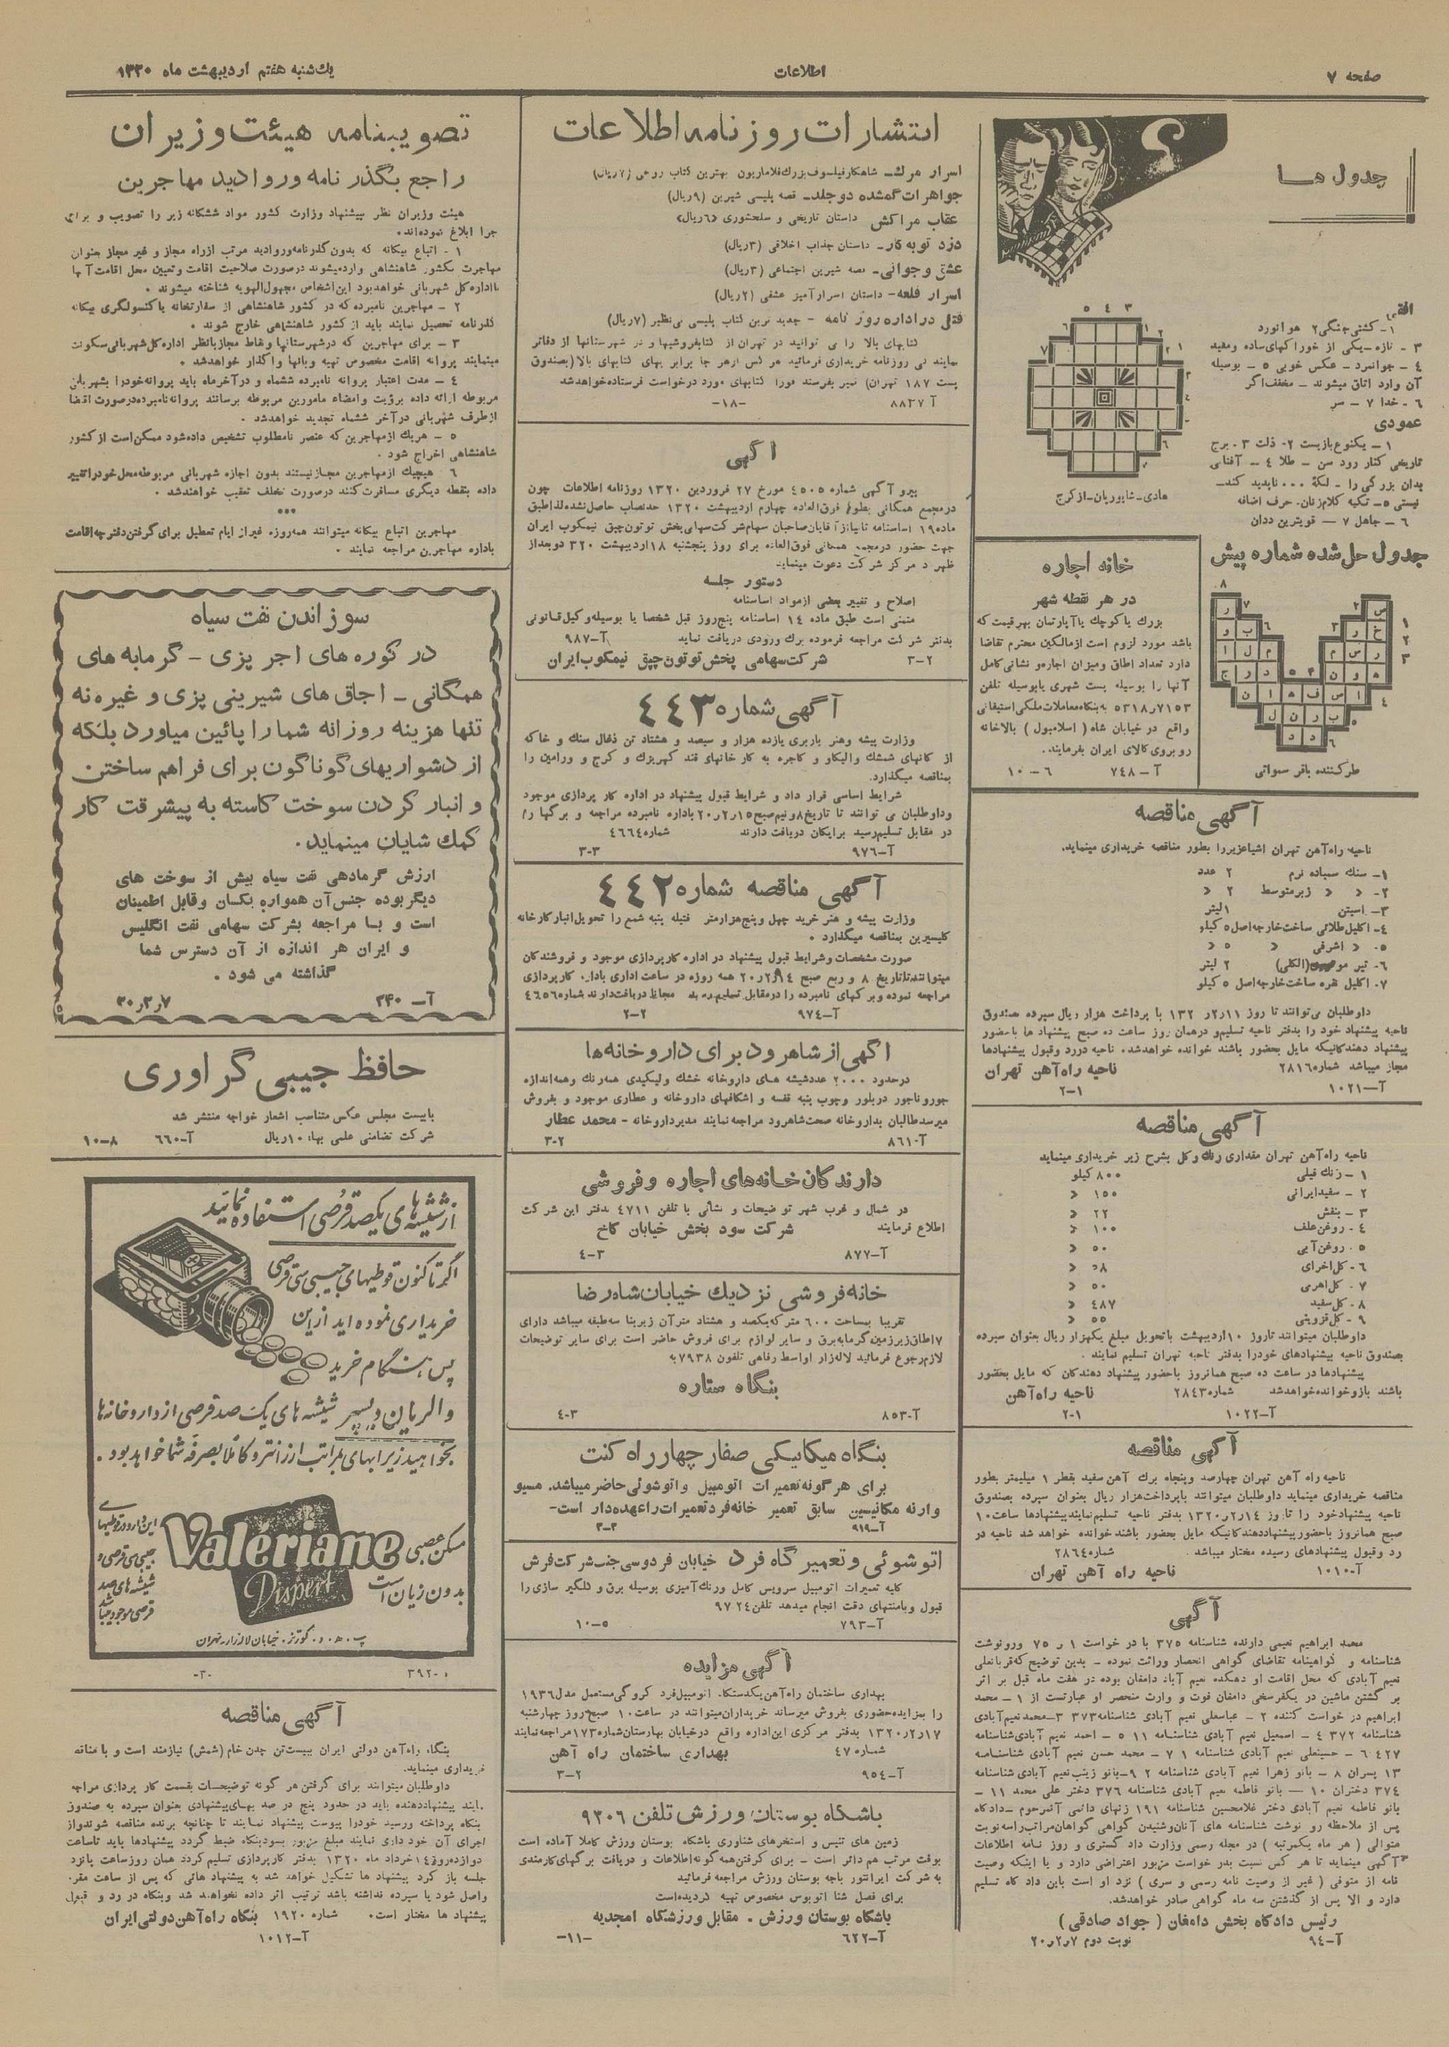 صفحه ۷
اطلاعات
یکشنبه هفتم اردیبهشت ماه ۱۳۲۰
جدول ها
افقی
۱- کشتی جنگی ۲ هوانورد
۳ - تازه - یکی از خوراکهای ساده و مفید
٤ - جوانمرد - عکس خوبی ٥ - بوسیله
آن وارد اتاق میشوند - مخفف اگر
٦ - خدا ۷ - سر
عمودی
تاریخی کنار رود سن - طلا ٤ - آفتابی
هادی - شاپوریان - از کرج
جدول حل شده شماره پیش
طرح کننده باقر سمواتی
خانه اجاره
در هر نقطه شهر
بزرگ یا کوچک یا آپارتمان بهر قیمت که
باشد مورد لزوم است از مالکین محترم تقاضا
دارد تعداد اطاق و میزان اجاره و نشانی کامل
آنها را بوسیله پست شهری یا بوسیله تلفن
واقع در خیابان شاه ( اسلامبول ) بالاخانه
روبروی کالای ایران بفرمایند.
آ - ۷٤۸ ٦ - ۱۰
آگهی مناقصه
ناحیه راه آهن تهران اشیاء زیر را بطور مناقصه خریداری مینماید.
۱- سنگ سمباده نرم ۲ عدد
۲- « « زبر متوسط ۲ «
۳- استن ۱ لیتر
٤- اکلیل طلائی ساخت خارجه اصل ٥ کیلو
٥- « اشرفی « ٥ «
۷- اکلیل نقره ساخت خارجه اصل ٥ کیلو
داوطلبان می توانند تا روز ۱۱ر۲ر ۱۳۲ با پرداخت هزار ریال سپرده صندوق
ناحیه پیشنهاد خود را بدفتر ناحیه تسلیم و در همان روز ساعت ده صبح پیشنهاد ها با حضور
پیشنهاد دهندکانیکه مایل بحضور باشند خوانده خواهد شد. ناحیه در رد و قبول پیشنهادها
مجاز میباشد شماره ۲۸۱٦ ناحیه راه آهن تهران
آ - ۱۰۲۱ ۲-۱
آگهی مناقصه
ناحیه راه آهن تهران مقداری رنگ و گل بشرح زیر خریداری مینماید
۱ - رنگ فیلی ۸۰۰ کیلو
۲ - سفید ایرانی ۱٥۰ «
۳ - بنفش ۲۲ «
٤ - روغن علف ۱۰۰ «
٥ - روغن آبی ٥۰ «
٦ - گل اخرای
۷ - گل اهری ٥۰ «
۸ - گل سفید ٤۸۷ «
۹ - گل قزوینی ٥٥ «
داوطلبان میتوانند تا روز ۱۰ اردیبهشت با تحویل مبلغ یکهزار ریال بعنوان سپرده
بصندوق ناحیه پیشنهادهای خود را بدفتر ناحیه تهران تسلیم نمایند .
پیشنهادها در ساعت ده صبح همانروز با حضور پیشنهاد دهندگان که مایل بحضور
باشند باز و خوانده خواهد شد شماره ۲۸٤۳ ناحیه راه آهن
آ - ۱۰۲۲ ۲-۱
آگهی مناقصه
ناحیه راه آهن تهران چهارصد و پنجاه برگ آهن سفید بقطر ۱ میلیمتر بطور
مناقصه خریداری مینماید داوطلبان میتوانند با پرداخت هزار ریال بعنوان سپرده بصندوق
ناحیه پیشنهاد خود را تا روز ۱٤ر۲ر۱۳۲۰ بدفتر ناحیه تسلیم نمایند پیشنهادها ساعت ۱۰
صبح همانروز با حضور پیشنهاد دهندکانیکه مایل بحضور باشند خوانده خواهد شد ناحیه در
رد و قبول پیشنهادهای رسیده مختار میباشد . شماره ۲۸٦٤
آ - ۱۰۱۰ ناحیه راه آهن تهران
آگهی
محمد ابراهیم نعیمی دارنده شناسنامه ۳۷٥ با در خواست ۱ ر ۷٥ و رونوشت
شناسنامه و گواهینامه تقاضای گواهی انحصار وراثت نموده - بدین توضیح که قربانعلی
نعیم آبادی که محل اقامت او دهکده نعیم آباد دامغان بوده در هفت ماه قبل بر اثر
بر گشتن ماشین در یکفرسخی دامغان فوت و وارث منحصر او عبارتست از ۱ - محمد
ابراهیم در خواست کننده ۲ - عباسعلی نعیم آبادی شناسنامه ۳۷۳ ۳ - محمد نعیم آبادی
شناسنامه ۳۷۲ ٤ - اسمعیل نعیم آبادی شناسنامه ۱۱ ٥ - احمد نعیم آبادی شناسنامه
٤۲۷ ٦ - حسینعلی نعیم آبادی شناسنامه ۱ ۷ - محمد حسن نعیم آبادی شناسنامه
۱۳ پسران ۸ - بانو زهرا نعیم آبادی شناسنامه ۲ ۹- بانو زینب نعیم آبادی شناسنامه
۳۷٤ دختران ۱۰ — بانو فاطمه نعیم آبادی شناسنامه ۳۷٦ دختر علی محمد ۱۱ -
بانو فاطمه نعیم آبادی دختر غلامحسین شناسنامه ۱۹۱ زنهای دائمی آنمرحوم - دادگاه
پس از ملاحظه رو نوشت شناسنامه های آنان و شنیدن گواهی گواهان مراتب را سه نوبت
متوالی ( هر ماه یکمرتبه ) در مجله رسمی وزارت داد گستری و روز نامه اطلاعات
آگهی مینماید تا هر کس نسبت بدر خواست مزبور اعتراضی دارد و یا اینکه وصیت
نامه از متوفی ( غیر از وصیت نامه رسمی و سری ) نزد او است باین داد گاه تسلیم
دارد و الا پس از گذشتن سه ماه گواهی صادر خواهد شد.
رئیس دادگاه بخش دامغان ( جواد صادقی )
آ - ۹٤ نوبت دوم ۷ر۲ر۲۰
انتشارات روزنامه اطلاعات
اسرار مرگ - شاهکار فیلسوف بزرگ فلاماریون بهترین کتاب روحی (۷ریال)
جواهرات گمشده دو جلد - قصه پلیسی شیرین (۹ریال)
عقاب مراکش داستان تاریخی و سلحشوری «٦ریال»
دزد توبه کار - داستان جذاب اخلاقی (۳ریال)
عشق و جوانی - قصه شیرین اجتماعی (۳ریال)
اسرار قلعه - داستان اسرار آمیز عشقی (۲ریال)
قتل در اداره روزنامه - جدید ترین کتاب پلیسی بی نظیر (۷ریال)
کتابهای بالا را می توانید در تهران از کتابفروشیها و در شهرستانها از دفاتر
نمایندگی روزنامه خریداری فرمائید هر کس از هر جا برابر بهای کتابهای بالا (بصندوق
پست ۱۸۷ تهران) تمبر بفرستد فورا کتابهای مورد درخواست فرستاده خواهد شد
آ ۸۸۲۷ -۱۸-
آگهی
پیرو آگهی شماره ٤٥۰٥ مورخ ۲۷ فروردین ۱۳۲۰ روزنامه اطلاعات چون
در مجمع همگانی بطور فوق العاده چهارم اردیبهشت ۱۳۲۰ حد نصاب حاصل نشده لذا طبق
ماده ۱۹ اساسنامه ثانیا از آقایان صاحبان سهام شرکت سهامی پخش توتون چپق نیمکوب ایران
جهت حضور در مجمع همگانی فوق العاده برای روز پنجشنبه ۱۸ اردیبهشت ۳۲۰ دو بعد از
ظهر در مرکز شرکت دعوت مینماید.
دستور جلسه
اصلاح و تغییر بعضی از مواد اساسنامه
متمنی است طبق ماده ۱٤ اساسنامه پنج روز قبل شخصا یا بوسیله وکیل قانونی
بدفتر شرکت مراجعه فرموده برگ ورودی دریافت نماید آ - ۹۸۷
شرکت سهامی پخش توتون چپق نیمکوب ایران ۲-۳
آگهی شماره ٤٤۳
وزارت پیشه و هنر باربری یازده هزار و سیصد و هشتاد تن ذغال سنگ و خاکه
از کانهای شمشک و الیکاو و گاجره به کار خانهای قند کهریزک و کرج و ورامین را
بمناقصه میگذارد.
شرایط اساسی قرار داد و شرایط قبول پیشنهاد در اداره کار پردازی موجود
و داوطلبان می توانند تا تاریخ ۸ و نیم صبح ۱٥ر۲ر۲۰ باداره نامبرده مراجعه و برگها را
در مقابل تسلیم رسید برایگان دریافت دارند شماره ٤٦٦٤
آ - ۹۷٦ ۳-۳
آگهی مناقصه شماره ٤٤۲
وزارت پیشه و هنر خرید چهل و پنج هزار متر فتیله پنبه شمع را تحویل انبار کارخانه
گلیسیرین بمناقصه میگذارد .
صورت مشخصات و شرایط قبول پیشنهاد در اداره کارپردازی موجود و فروشندگان
میتوانند تا تاریخ ۸ و ربع صبح ۱٤ر۲ر۲۰ همه روزه در ساعت اداری باداره کارپردازی
مراجعه نموده و برگهای نامبرده را در مقابل تسلیم رسید مجانا دریافت دارند شماره ٤٦٥٦
آ - ۹۷٤ ۲-۲
آگهی از شاهرود برای داروخانه ها
در حدود ۲۰۰۰ عدد شیشه های داروخانه خشک و لیکیدی همه رنگ و همه اندازه
جور و ناجور در بلور و چوب پنبه قفسه و اشکافهای داروخانه و عطاری موجود و بفروش
میرسد طالبان بداروخانه صحت شاهرود مراجعه نمایند مدیر داروخانه - محمد عطار
آ - ۸٦۱ ۲-۳
دارندگان خانه های اجاره و فروشی
در شمال و غرب شهر توضیحات و نشانی با تلفن ٤۷۱۱ بدفتر این شرکت
اطلاع فرمایند شرکت سود بخش خیابان کاخ
آ - ۸۷۷ ۳-٤
خانه فروشی نزدیک خیابان شاه رضا
تقریبا بمساحت ٦۰۰ متر که یکصد و هشتاد متر آن زیر بنا سه طبقه میباشد دارای
۱۷ اطاق زیر زمین گرمابه برق و سایر لوازم برای فروش حاضر است برای سایر توضیحات
لازم رجوع فرمائید لاله زار اواسط رفاهی تلفون ۷۹۳۸ به
بنگاه ستاره
آ - ۸٥۳ ۳-٤
بنگاه میکانیکی صفار چهارراه کنت
برای هر گونه تعمیرات اتومبیل و اتوشوئی حاضر میباشد. مسیو
وارنه مکانیسین سابق تعمیر خانه فرد تعمیرات را عهده دار است -
آ - ۹۱۹ ۳-۳
اتوشوئی و تعمیر گاه فرد خیابان فردوسی جنب شرکت فرش
کلیه تعمیرات اتومبیل سرویس کامل و رنگ آمیزی بوسیله برق و گلگیر سازی را
قبول و بامنتهای دقت انجام میدهد تلفن ۹۷۲٤
آ - ۷۹۳ ٥ - ۱۰
آگهی مزایده
بهداری ساختمان راه آهن یکدستگاه اتومبیل فرد کروکی مستعمل مدل ۱۹۳٦
را بمزایده حضوری بفروش میرساند خریداران میتوانند در ساعت ۱۰ صبح روز چهارشنبه
۱۷ر۲ر۱۳۲۰ بدفتر مرکزی این اداره واقع در خیابان بهارستان شماره ۱۷۳ مراجعه نمایند
شماره ٤۷ بهداری ساختمان راه آهن
آ - ۹٥٤ ۲-۳
باشگاه بوستان ورزش تلفن ۹۲۰٦
زمین های تنیس و استخرهای شناوری باشگاه بوستان ورزش کاملا آماده است
بوقت مرتب هم دائر است - برای گرفتن همه گونه اطلاعات و دریافت برگهای کارمندی
به شرکت ایرانتور یا به بوستان ورزش مراجعه فرمائید
برای فصل شنا اتوبوس مخصوص تهیه گردیده است
باشگاه بوستان ورزش . مقابل ورزشگاه امجدیه
آ - ٦۲۲ -۱۱-
تصویبنامه هیئت وزیران
راجع بگذرنامه و روادید مهاجرین
هیئت وزیران نظر بپیشنهاد وزارت کشور مواد ششگانه زیر را تصویب و برای
اجرا ابلاغ نموده اند.
۱ - اتباع بیگانه که بدون گذرنامه و روادید مرتب از راه مجاز و غیر مجاز بعنوان
مهاجرت بکشور شاهنشاهی وارد میشوند در صورت صلاحیت اقامت و تعیین محل اقامت آنها
با اداره کل شهربانی خواهد بود این اشخاص مجهول الهویه شناخته میشوند .
۲ - مهاجرین نامبرده که در کشور شاهنشاهی از سفارتخانه یا کنسولگری بیگانه
گذرنامه تحصیل نمایند باید از کشور شاهنشاهی خارج شوند .
۳ - برای مهاجرین که در شهرستانها و نقاط مجاز بانظر اداره کل شهربانی سکونت
مینمایند پروانه اقامت مخصوص تهیه و بآنها واگذار خواهد شد .
٤ - مدت اعتبار پروانه نامبرده ششماه و در آخر ماه باید پروانه خود را بشهربانی
مربوطه ارائه داده برؤیت و امضاء مامورین مربوطه برسانند پروانه نامبرده در صورت اقتضا
از طرف شهربانی در آخر ششماه تجدید خواهد شد .
٥ - هریک از مهاجرین که عنصر نامطلوب تشخیص داده شود ممکن است از کشور
شاهنشاهی اخراج شود .
٦ هیچیک از مهاجرین مجاز نیستند بدون اجازه شهربانی مربوطه محل خود را تغییر
داده بنقطه دیگری مسافرت کنند در صورت تخلف تعقیب خواهند شد .
***
مهاجرین اتباع بیگانه میتوانند همه روزه غیر از ایام تعطیل برای گرفتن دفترچه اقامت
باداره مهاجرین مراجعه نمایند .
سوزاندن نفت سیاه
در کوره های آجر پزی - گرمابه های
همگانی - اجاق های شیرینی پزی و غیره نه
تنها هزینه روزانه شما را پائین میاورد بلکه
از دشواریهای گوناگون برای فراهم ساختن
و انبار کردن سوخت کاسته به پیشرفت کار
کمک شایان مینماید.
ارزش گرمادهی نفت سیاه بیش از سوخت های
دیگر بوده جنس آن همواره یکسان و قابل اطمینان
است و با مراجعه بشرکت سهامی نفت انگلیس
و ایران هر اندازه از آن دسترس شما
گذاشته می شود .
آ - ۳٤۰ ۷ر۲ر۲۰
حافظ جیبی گراوری
با بیست مجلس عکس متناسب اشعار خواجه منتشر شد
شرکت تضامنی علمی بهاء ۱۰ ریال آ - ٦٦۰ ۸-۱۰
از شیشه های یکصد قرصی استفاده نمائید
اگر تا کنون قوطیهای جیبی سی قرصی
خریداری نموده اید از این
پس هنگام خرید
والریان دیسپر شیشه های یک صد قرصی از داروخانه ها
بخواهید زیرا بهای بمراتب ارزانتر و کاملا بصرفه شما خواهد بود .
Valériane
Dispert
مسکن عصبی
بدون زیان است
این دارو در قوطیهای
جیبی سی قرصی و
شیشه های صد
قرصی موجود میباشد
خیابان لاله زار - تهران
۳۹۲۰ -۳۰-
آگهی مناقصه
بنگاه راه آهن دولتی ایران ببیست تن چدن خام (شمش) نیازمند است و با مناقصه
خریداری مینماید.
داوطلبان میتوانند برای گرفتن هر گونه توضیحات بقسمت کار پردازی مراجعه
نمایند پیشنهاد دهنده باید در حدود پنج در صد بهای پیشنهادی بعنوان سپرده به صندوق
بنگاه پرداخته و رسید خود را پیوست پیشنهاد نمایند تا چنانچه برنده مناقصه شوند و از
اجرای آن خود داری نمایند مبلغ مزبور بسود بنگاه ضبط گردد پیشنهادها باید تا ساعت
دوازده روز ۱٤ خرداد ماه ۱۳۲۰ بدفتر کارپردازی تسلیم گردد همان روز ساعت پانزده
جلسه باز کرد پیشنهاد ها تشکیل خواهد شد به پیشنهاد هائی که پس از ساعت مقرر
واصل شود یا سپرده نداشته باشد ترتیب اثر داده نخواهد شد و بنگاه در رد و قبول
پیشنهاد ها مختار است . شماره ۱۹۲۰ بنگاه راه آهن دولتی ایران
آ - ۱۰۱۲